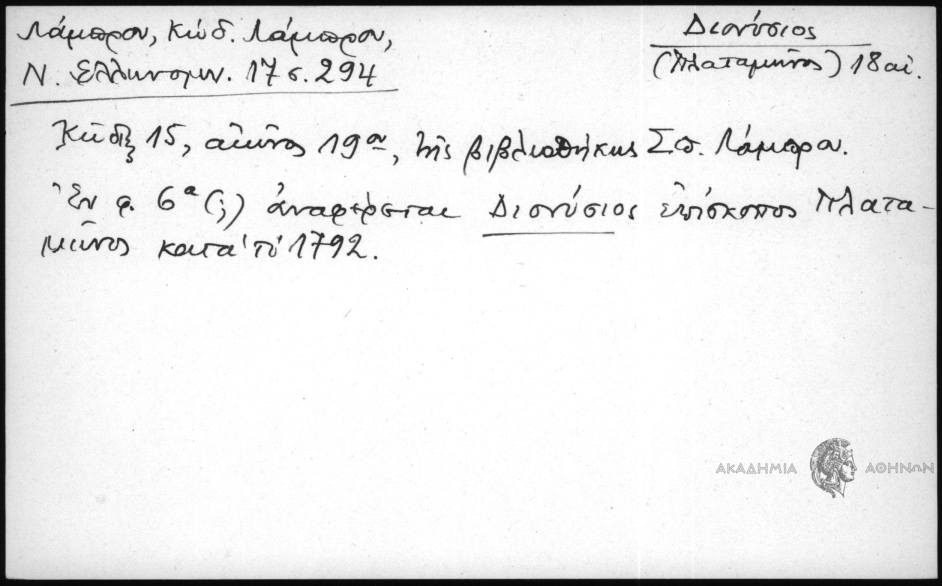 Λάμπρου, Κώδ. Λάμπρου,
Ν. Ἑλληνομν. 17 σ. 294
Διονύσιος
(Πλαταμῶνος) 18 αἰ.
Κῶδιξ 15, αἰῶνος 19ου, τῆς βιβλιοθήκης Σπ. Λάμπρου.
Ἐν φ. 6α (;) ἀναφέρεται Διονύσιος ἐπίσκοπος Πλατα-
μῶνος κατὰ τὸ 1792.
ΑΚΑΔΗΜΙΑ ΑΘΗΝΩΝ